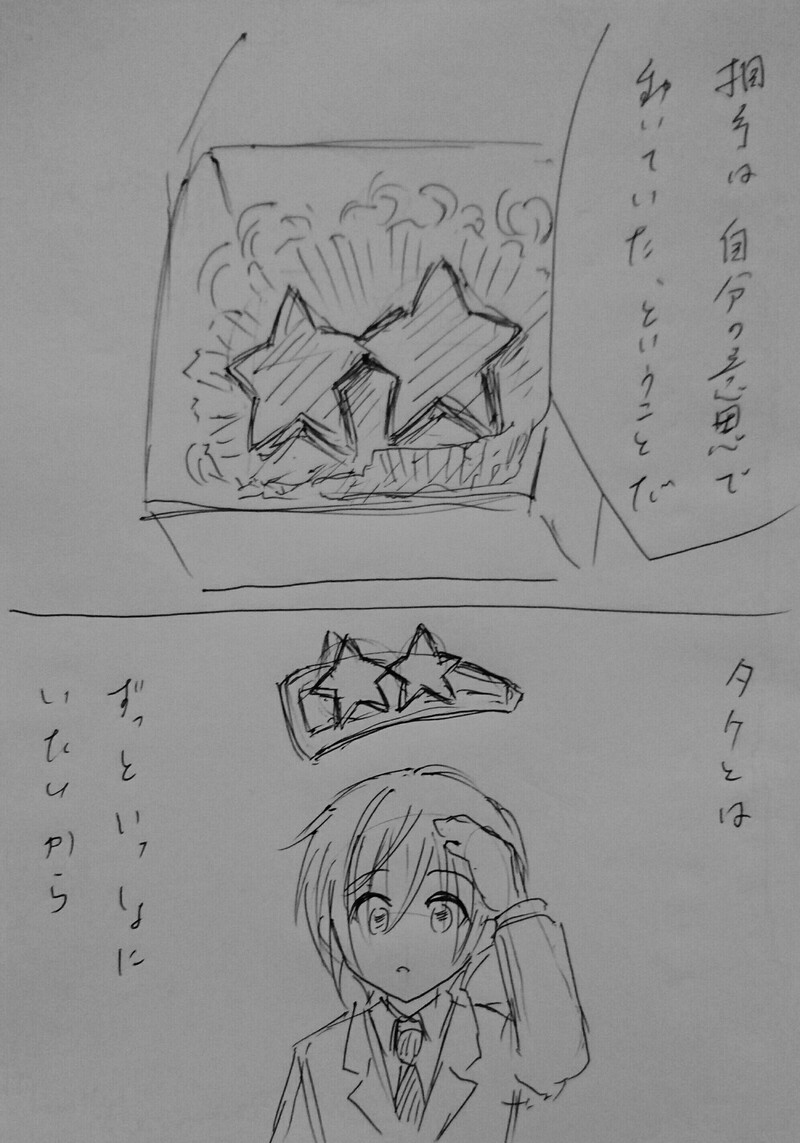 相手は自分の意思で
動いていた、ということだ
タケとは
ずっといっしょに
いたいから